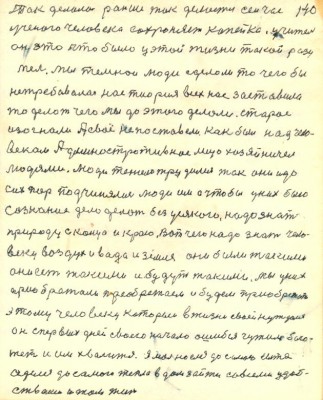 Так делали раньше так делаете сейчас 140
ученого человека сохроняет копейка. учител
он это кто было у этой жизни такой разу
мел. мы темной люди сделом то чего бы
нетребовалас настиория всех нас заставила
то делат чего мы до этого делом. старое
изогнали А свое непоставели как был над чело
веком Административное лицо хозяйничел
людями. Люди техно трудилис так они и до
сих пор подчинялис люди им а чтобы у них было
сознание дело делат без усякого, надо знат
природу с конца и краю, вот чего надо знат чело
веку воздух и вада и земля они были такими
они ест такими и будут такими. мы у них
приобретали приобретаем и будем приобретат
этому человеку которой в жизни своей нуждался
он с первых дней своего начало ошибся чужим бога
тет и им хвалится. Я молюся до самою
седился до самого тепла в дом зайти совсеми удоб
ствами и там жит